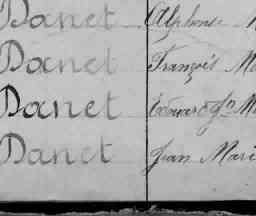 Danet Alphonse
Danet François Ma
Danet Edouard Jn M
Danet Jean Mari